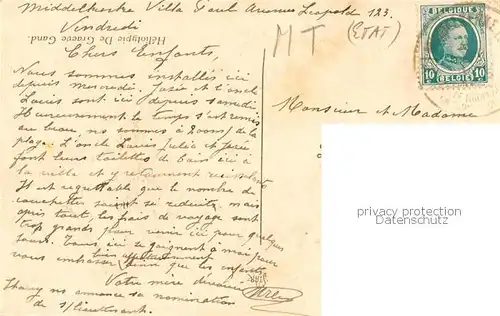 Middelkerke Villa Paul Avenue Leopold 123.
Vendredi
MT (ETAT)
Chers Enfants,
Nous sommes installés ici
depuis mercredi. Josée et l'oncle
Louis sont ici depuis samedi
Heureusement le temps s'est remis
au beau, nous sommes à 200m de la
plage. L'oncle Louis, Julia et
font leurs toilettes de bain ici à
la villa et y retournent
Il est regrettable que le nombre de
soient si réduites, mais
après tout, les frais de voyage sont
trop grands pour venir ici pour quelques
jours. Tous ici se joignent à moi pour
vous embrasser bien affectueusement ainsi que les enfants
Votre mère dévouée
nous annonce sa nomination
de s/lieutenant.
Héliotypie De Graeve Gand.
BELGIQUE
10 10
BELGIË
Monsieur et Madame
privacy protection
Datenschutz